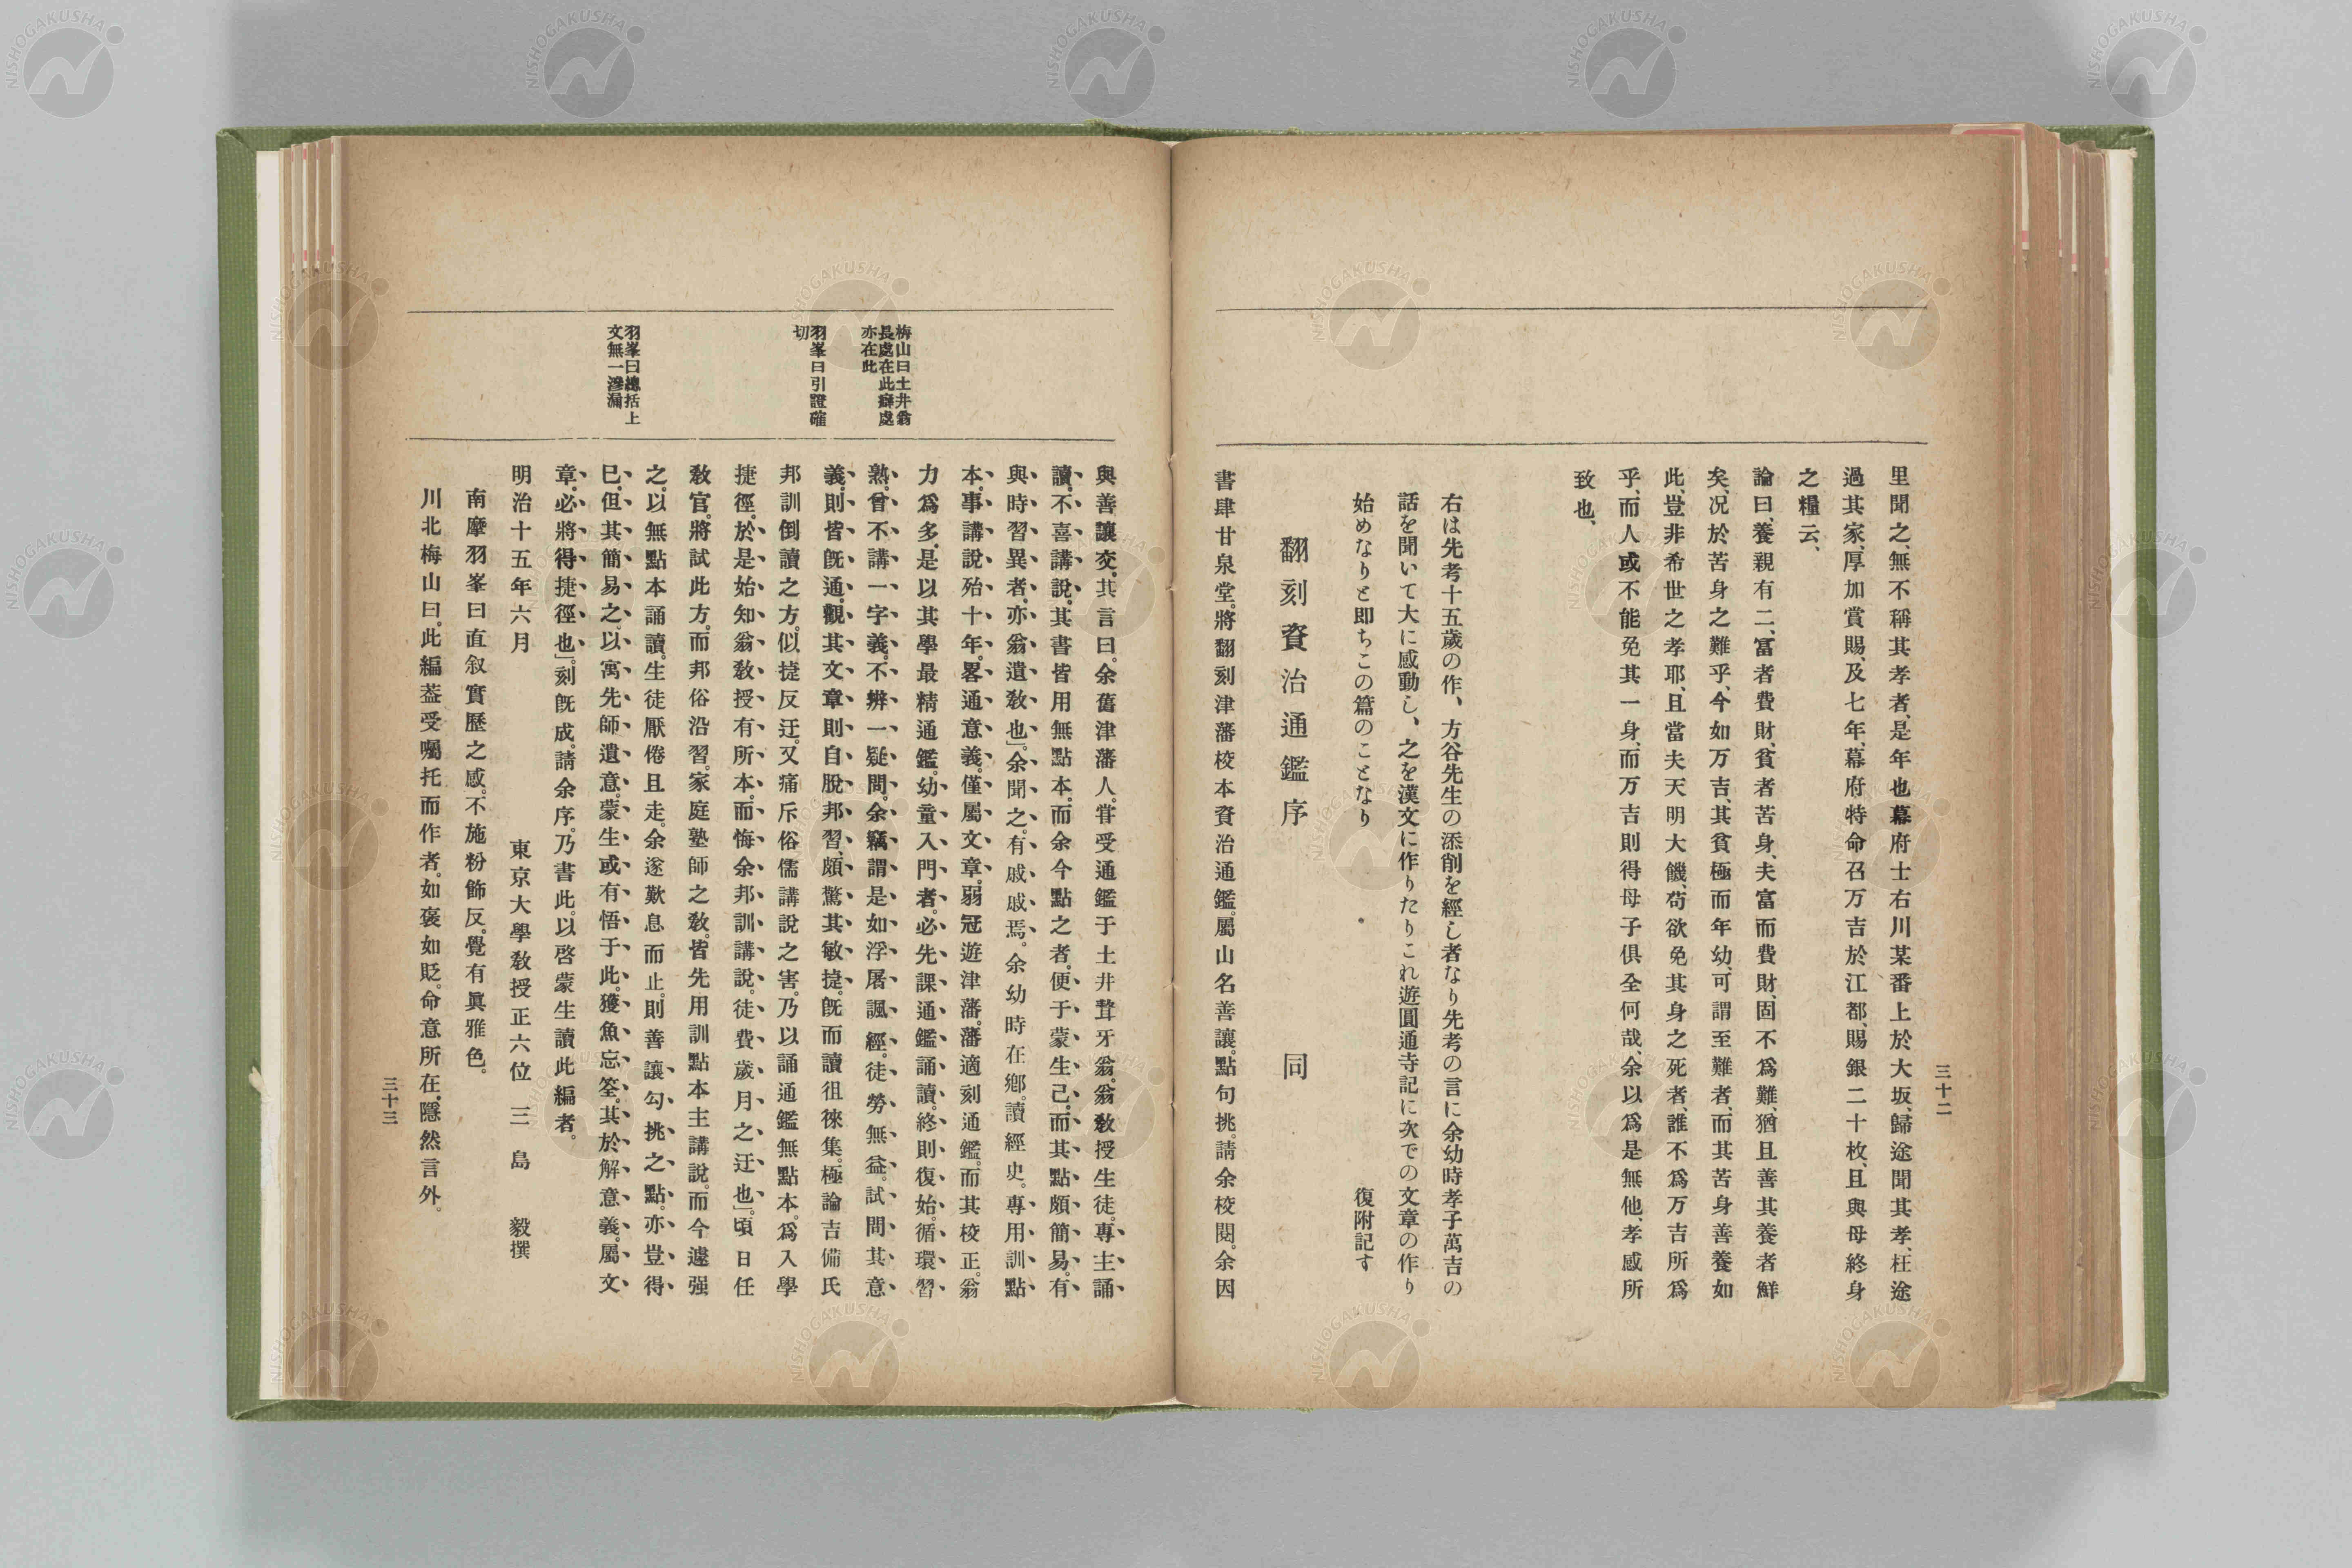 三十二
里聞之、無不稱其孝者、是年也幕府士右川某番上於大坂、歸途聞其孝、枉途
過其家、厚加賞賜、及七年、幕府特命召万吉於江都、賜銀二十枚、且與母終身
之糧云、
論曰、養親有二、富者費財、貧者苦身、夫富而費財、固不爲難、猶且善其養者鮮
矣、況於苦身之難乎、今如万吉、其貧極而年幼、可謂至難者、而其苦身善養如
此、豈非希世之孝耶、且當夫天明大饑、苟欲免其身之死者、誰不爲万吉所爲
乎、而人或不能免其一身、而万吉則得母子俱全何哉、余以爲是無他、孝感所
致也、
右は先考十五歲の作、方谷先生の添削を經し者なり先考の言に余幼時孝子萬吉の
話を聞いて大に感動し、之を漢文に作りたりこれ遊圓通寺記に次での文章の作り
始めなりと即ちこの篇のことなり 復附記す
翻刻資治通鑑序 同
書肆甘泉堂。將翻刻津藩校本資治通鑑。屬山名善讓。點句挑。請余校閱。余因
梅山曰土井翁
長處在此癖處
亦在此
羽峯曰引證確
切
羽峯曰總括上
文無一滲漏
與善讓交。其言曰。余舊津藩人。甞受通鑑于土井聱牙翁。翁敎授生徒。專主誦
讀。不喜講說。其書皆用無點本。而余今點之者。便于蒙生已。而其點頗簡易。有
與時習異者。亦翁遺敎也」。余聞之。有戚戚焉。余幼時在鄕。讀經史。專用訓點
本。事講說殆十年。畧通意義。僅屬文章。弱冠遊津藩。藩適刻通鑑。而其校正。翁
力爲多。是以其學最精通鑑。幼童入門者。必先課通鑑誦讀。終則復始。循環習
熟。曾不講一字義。不辨一疑問。余竊謂是如浮屠諷經。徒勞無益。試問其意
義。則皆既通。觀其文章。則自脫邦習。頗驚其敏捷。既而讀徂徠集。極論吉備氏
邦訓倒讀之方。似捷反迂。又痛斥俗儒講說之害。乃以誦通鑑無點本。爲入學
捷徑。於是始知翁敎授有所本。而悔余邦訓講說。徒費歲月之迂也」。頃日任
敎官。將試此方。而邦俗沿習。家庭塾師之敎。皆先用訓點本主講說。而今遽强
之。以無點本誦讀。生徒厭倦且走。余遂歎息而止。則善讓勾挑之點。亦豈得
已。但其簡易之。以寓先師遺意。蒙生或有悟于此。獲魚忘筌。其於解意義。屬文
章。必將得捷徑也」。刻既成。請余序。乃書此。以啓蒙生讀此編者。
明治十五年六月 東京大學敎授正六位 三島 毅撰
南摩羽峯曰直叙實歷之感。不施粉飾反。覺有眞雅色。
川北梅山曰。此編葢受囑托而作者。如褒如貶。命意所在。隱然言外。
三十三